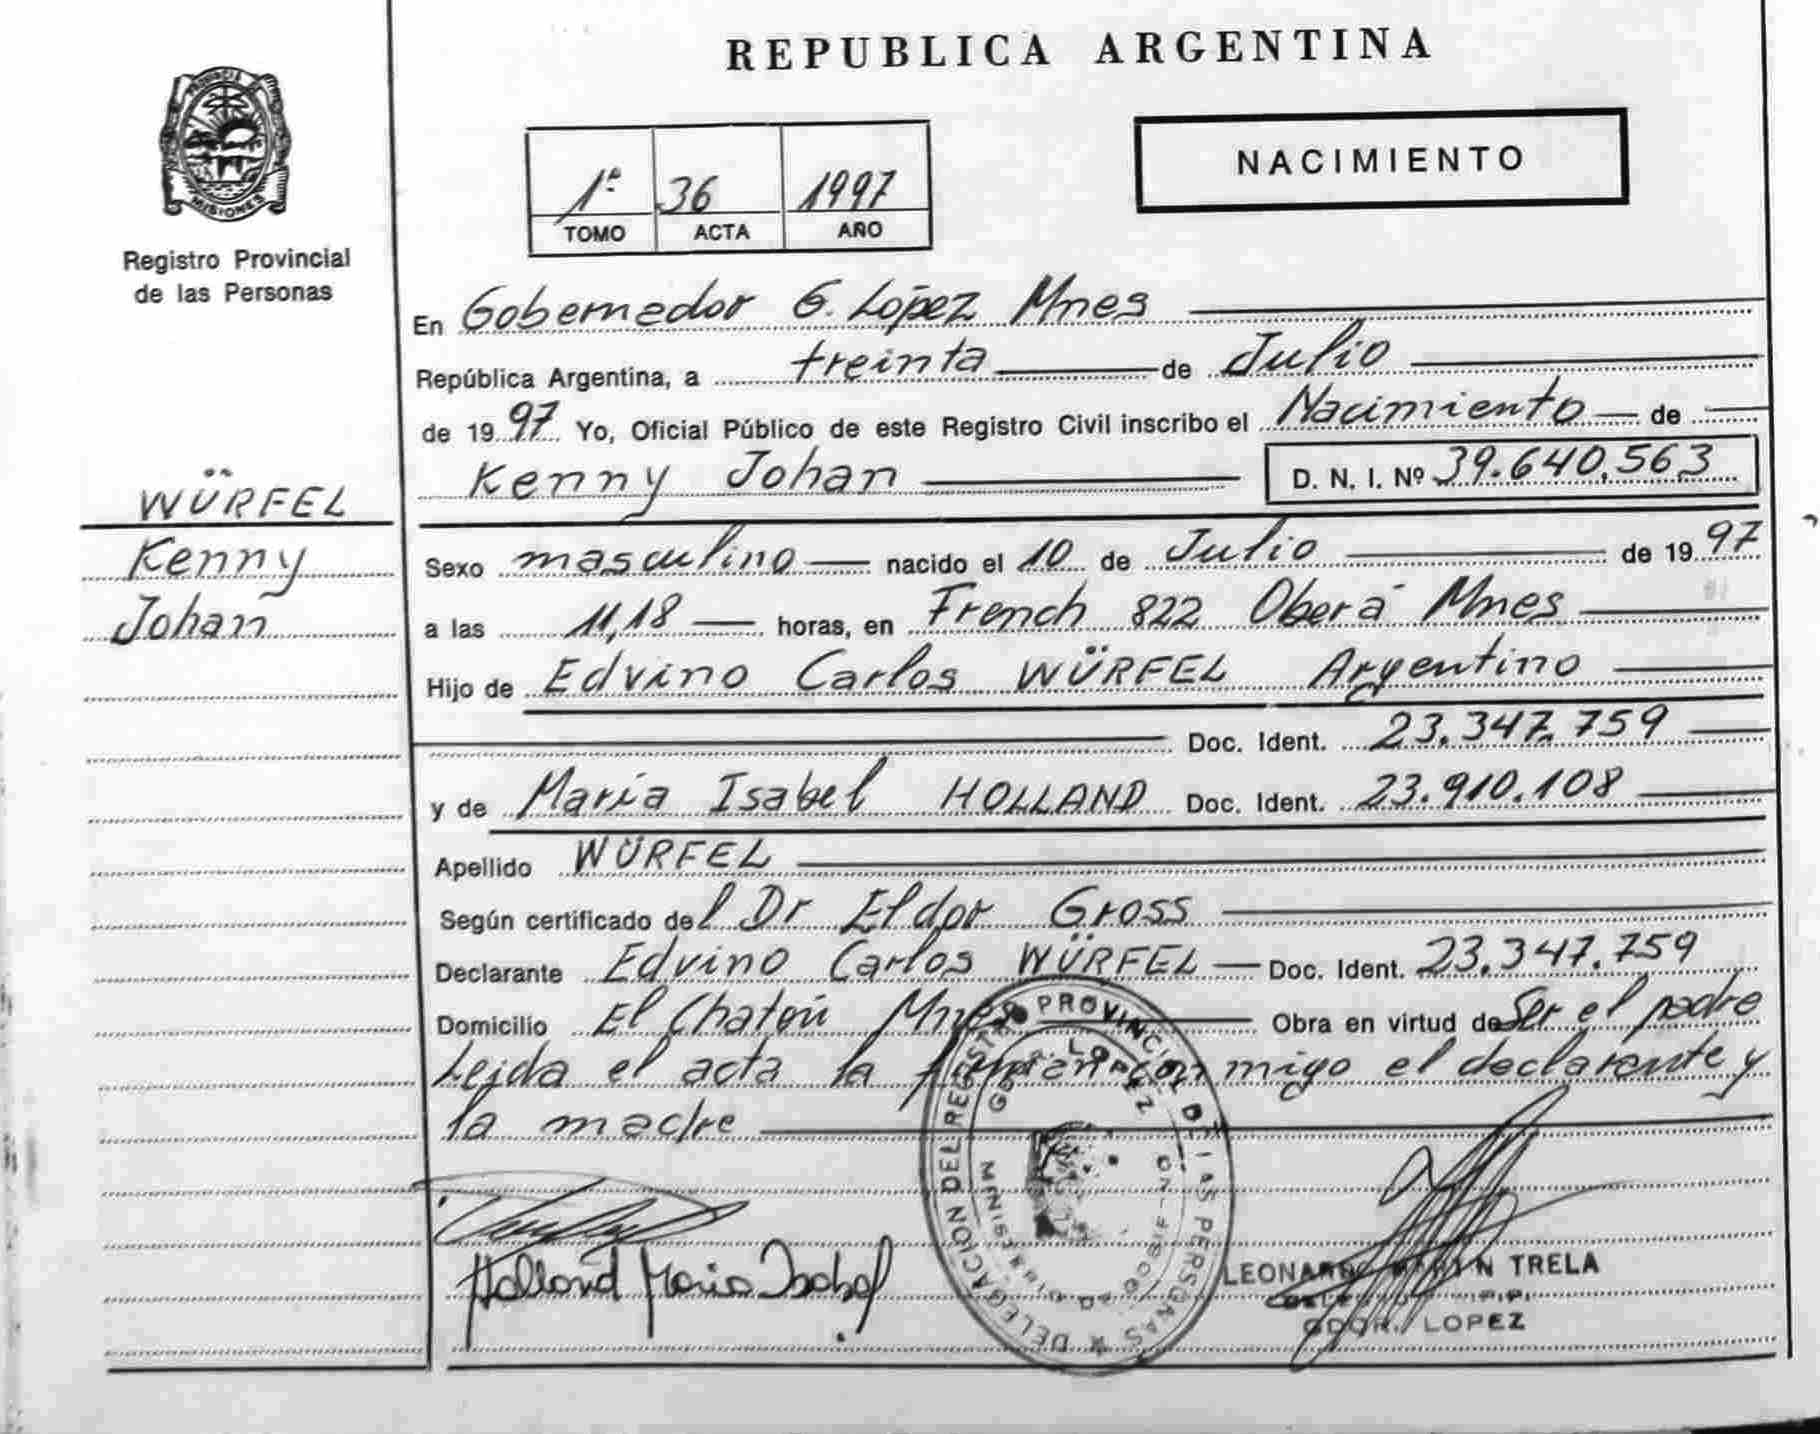 REPUBLICA ARGENTINA
PROVINCIA DE
MISIONES
Registro Provincial
de las Personas
1º 36 1997
TOMO ACTA AÑO
NACIMIENTO
En Gobernador G. López Mnes
República Argentina, a treinta de Julio
de 1997 Yo, Oficial Público de este Registro Civil inscribo el Nacimiento de
Kenny Johan D. N. I. Nº 39.640.563
WÜRFEL
Kenny
Johan
Sexo masculino nacido el 10 de Julio de 1997
a las 11,18 horas, en French 822 Oberá Mnes
Hijo de Edvino Carlos WÜRFEL Argentino
Doc. Ident. 23.347.759
y de María Isabel HOLLAND Doc. Ident. 23.910.108
Apellido WÜRFEL
Según certificado del Dr Eldor Gross
Declarante Edvino Carlos WÜRFEL Doc. Ident. 23.347.759
Domicilio El Chatón Mnes Obra en virtud de Ser el padre
Leida el acta la firman conmigo el declarante y
la madre
Holland Maria Isabel
DELEGACION DEL REGISTRO PROVINCIAL DE LAS PERSONAS
LOPEZ
MISIONES
TRELA
GDOR. LOPEZ